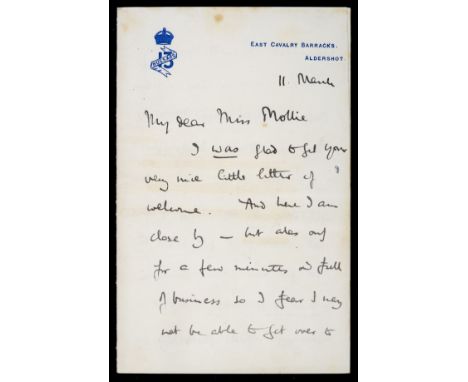 13
HUSSARS
EAST CAVALRY BARRACKS.
ALDERSHOT.
11. March
My dear Miss Mollie
I was glad to get your
very nice little letter of
welcome. And here I am
close by — but alas only
for a few minutes and full
of business so I fear I may
not be able to get over to